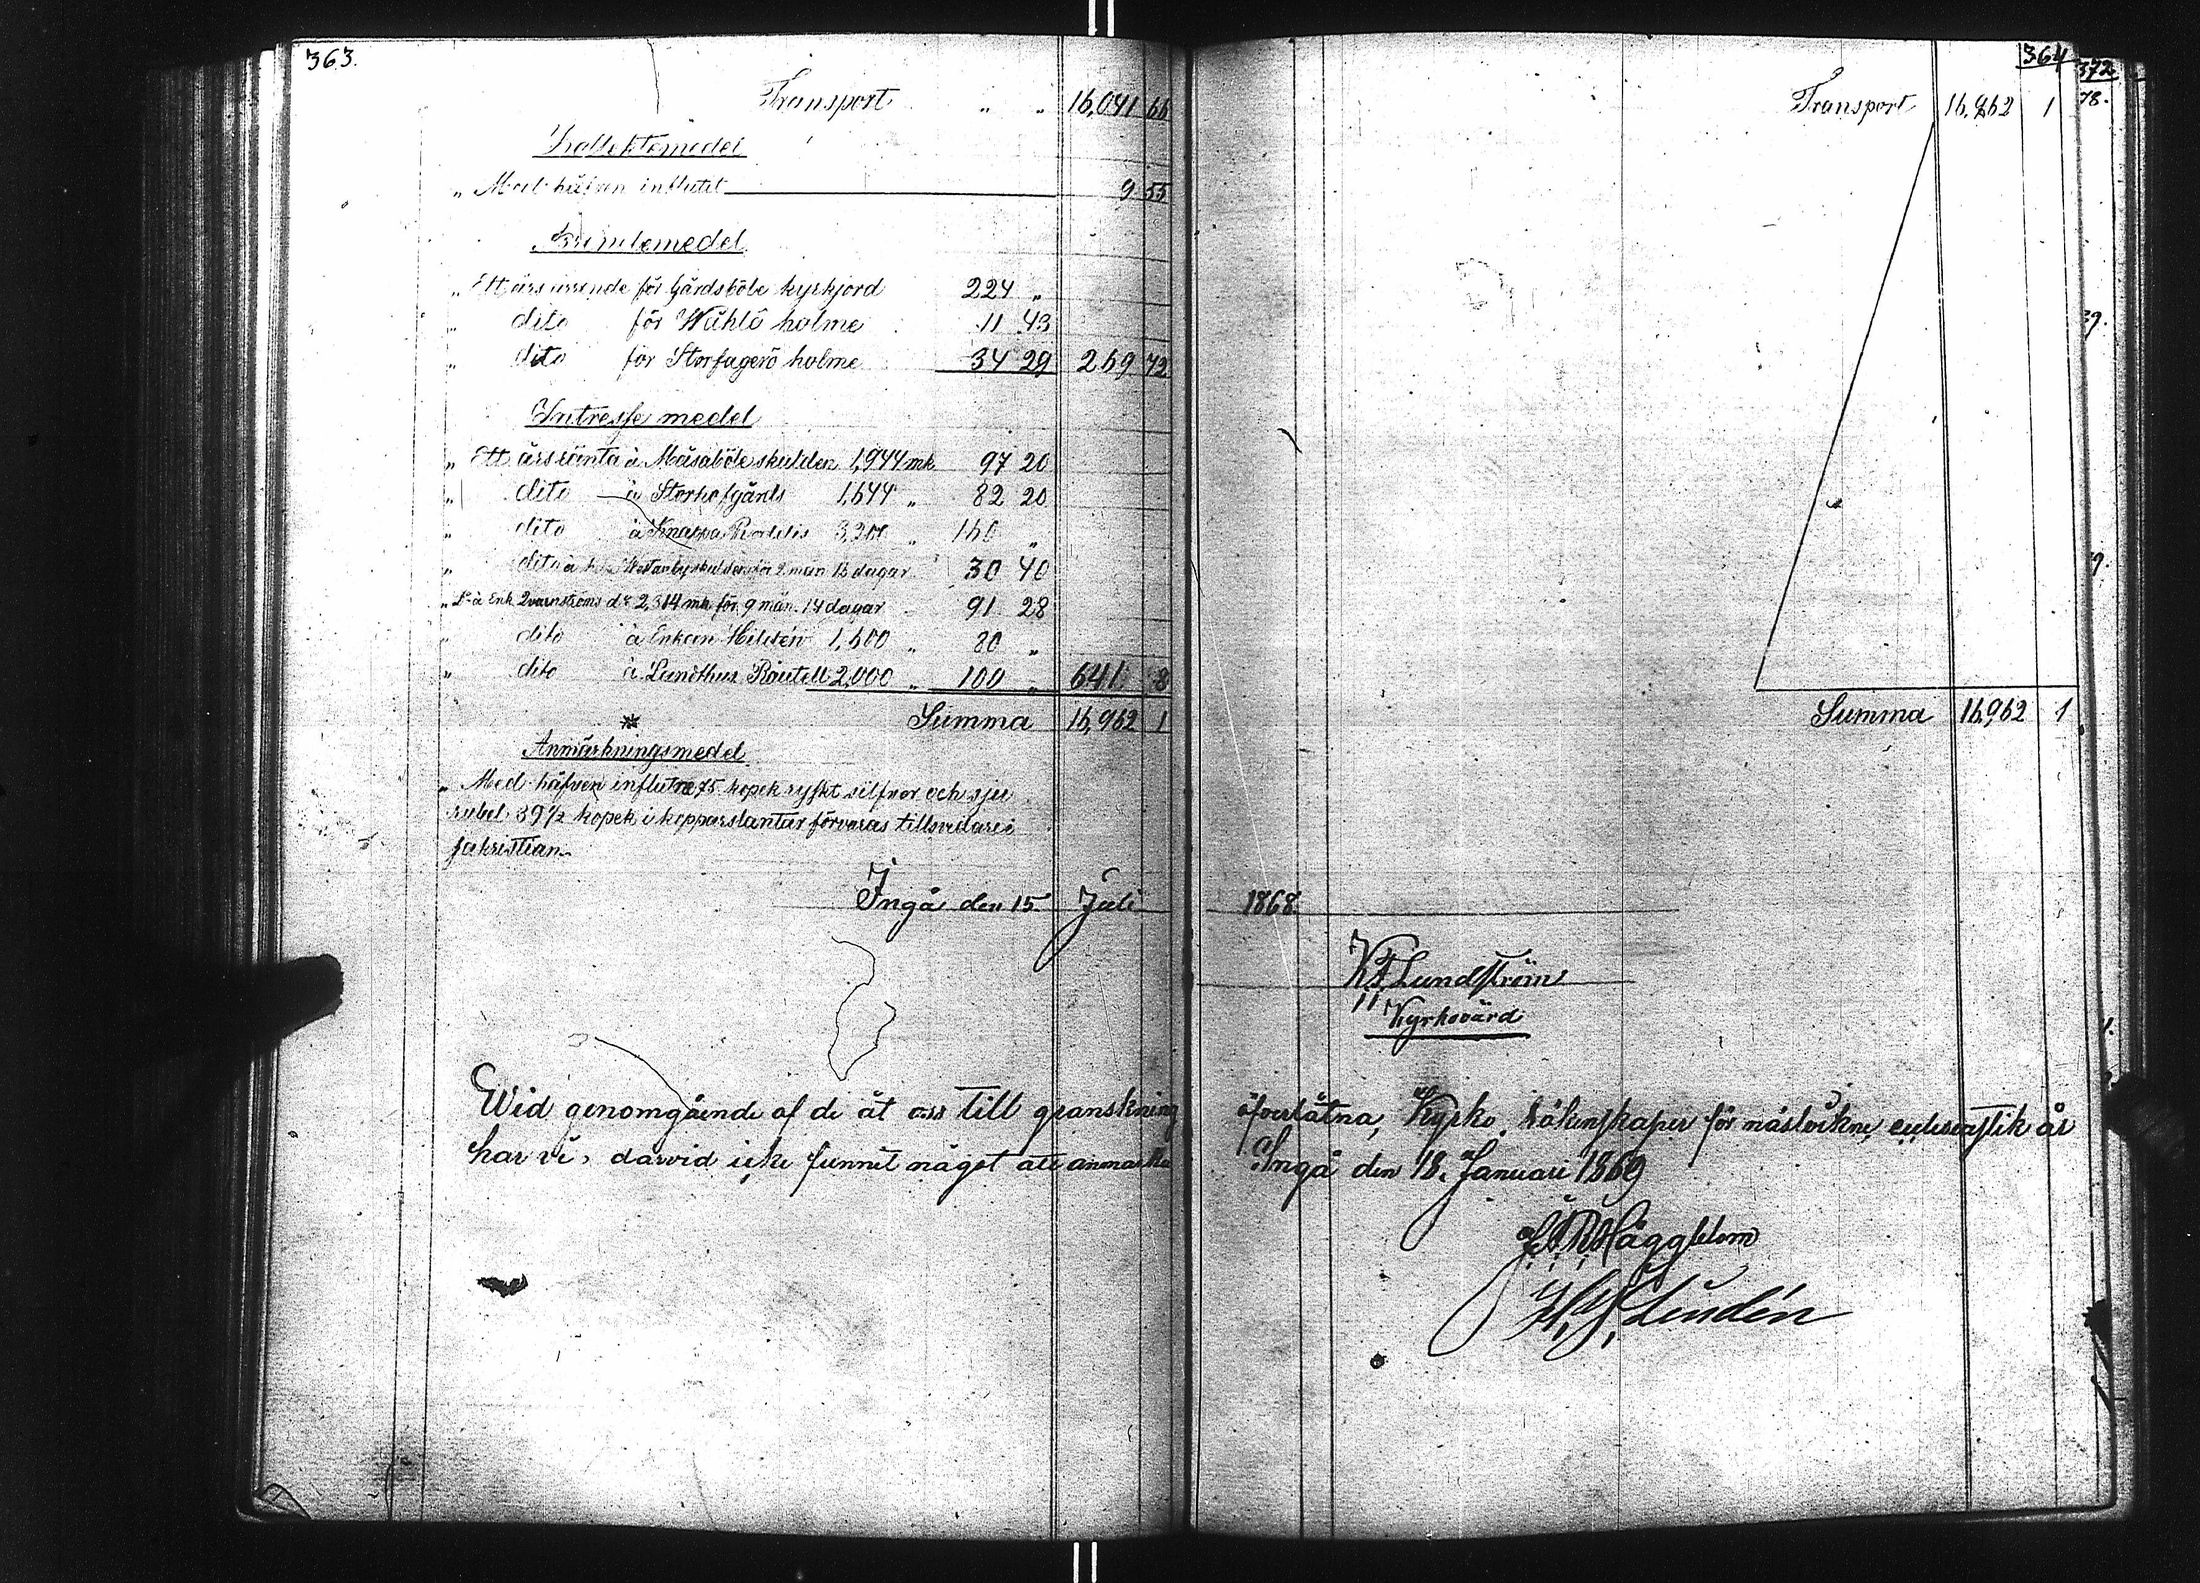 363.
Transport " " 16,041 66
Kollektemedel
" Med håfven influtit 9 55
Arrendemedel
" Ett års arrende för Gårdsböle kyrkjord 224 "
" dito för Wåhlö holme 11 43
" dito för Storfagerö holme 34 29 269 72
Intresse medel
" Ett års ränta à Måsaböle skulden 1,944 mk 97 20
" dito à Storhofgårds 1,644 " 82 20
" dito à Knappa 3,200 " 160 "
" dito à Westanby skulden för 9 mån 13 dagar 30 40
" Do à Enk Qvarnströms do 2,314 mk för 9 mån. 14 dagar 91 28
" dito à Enkan Hildén 1,600 " 80 "
" dito à Lundhus 2,000 " 100 " 641 8
Summa 16,962 1
Anmärkningsmedel
" Med håfven influtne 75 kopek ryskt silfver och sju
rubel 39 1/2 kopek i kopparslantar förvaras tillsvidare i
sakristian
Ingå den 15 Juli 1868.
364
372
78.
Transport 16,962 1
39.
9.
Summa 16,962 1
K F Lundström
Kyrkovärd
Wid genomgående af de åt oss till granskning öfverlåtna, Kyrko räkenskaper för näslockne ecclesiastik år
har vi, darvid icke funnit något att anmärka Ingå den 18. Januari 1869
Häggblom
Lindén